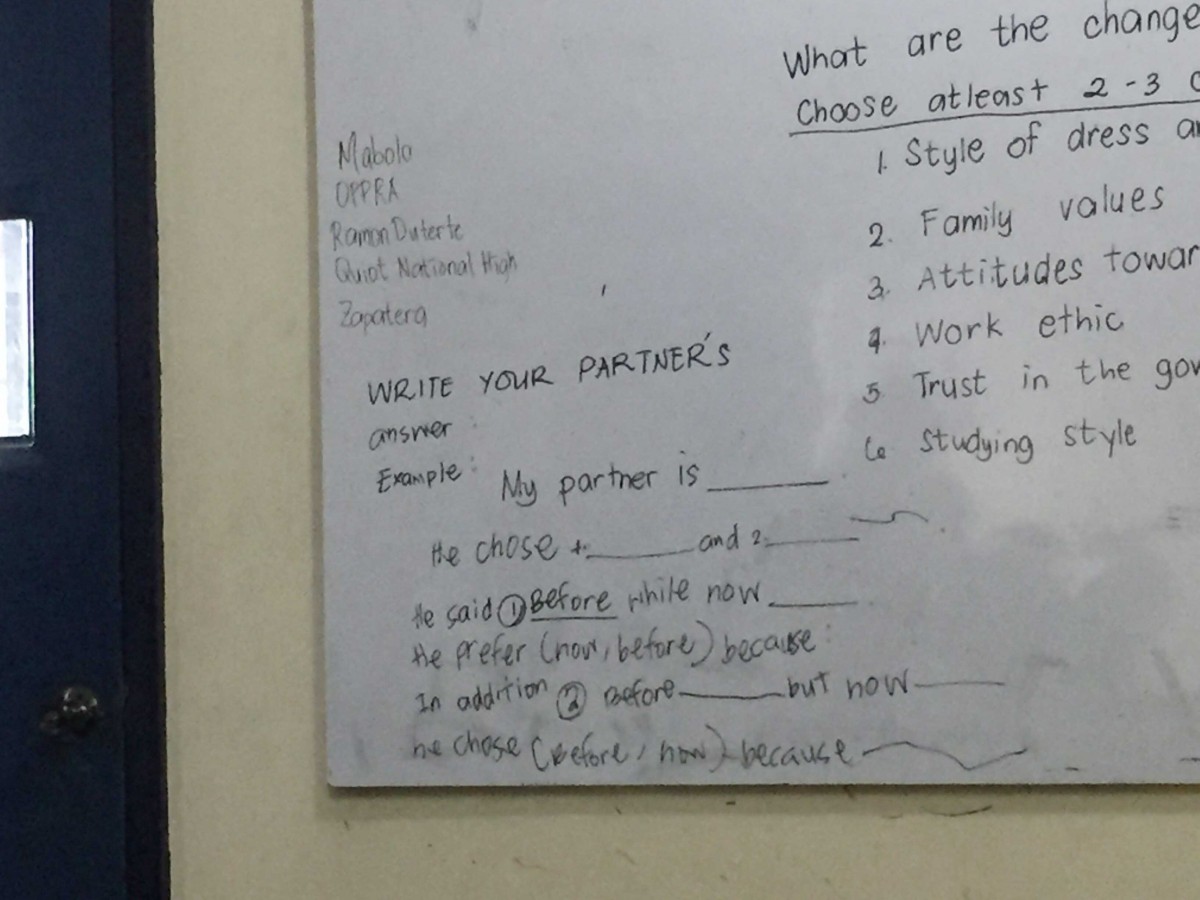 What are the change
Choose atleast 2-3
1. Style of dress
2. Family values
3. Attitudes towar
4. Work ethic
5 Trust in the gov
6 Studying style
Mabolo
OPPRA
Ramon Duterte
Quiot National High
Zapatera
WRITE YOUR PARTNER'S
answer :
Example : My partner is ______
He chose 1. ______ and 2. ______
He said ① Before while now ______
He prefer (now, before) because :
In addition ② Before ______ but now ______
he chose (Before, now) because